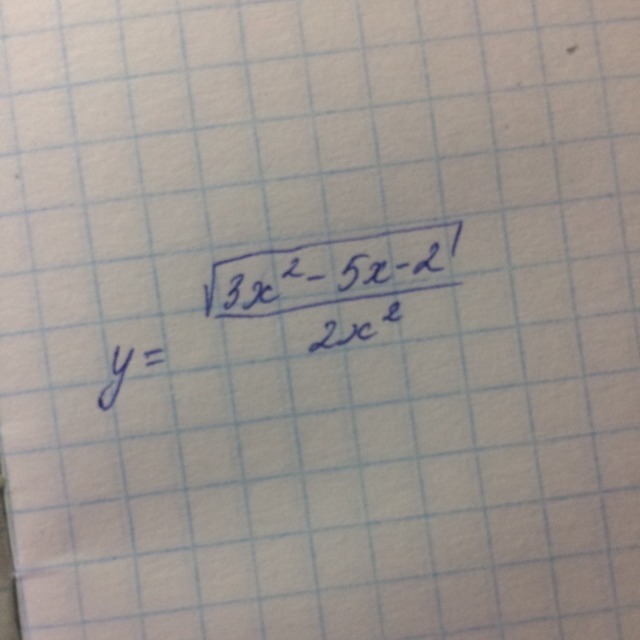 y = √(3x² - 5x - 2) / 2x²